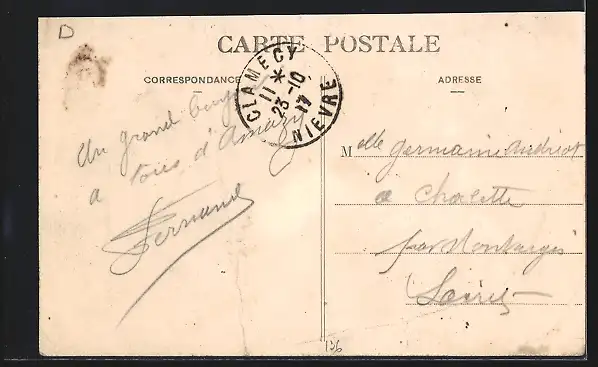 D
CARTE POSTALE
CORRESPONDANCE
ADRESSE
CLAMECY
11 *
23-10
17
NIEVRE
Un grand
a tous d'Amazy
Fernand
Melle Germaine Andriot
a Chalette
par Montargis
Loiret
136